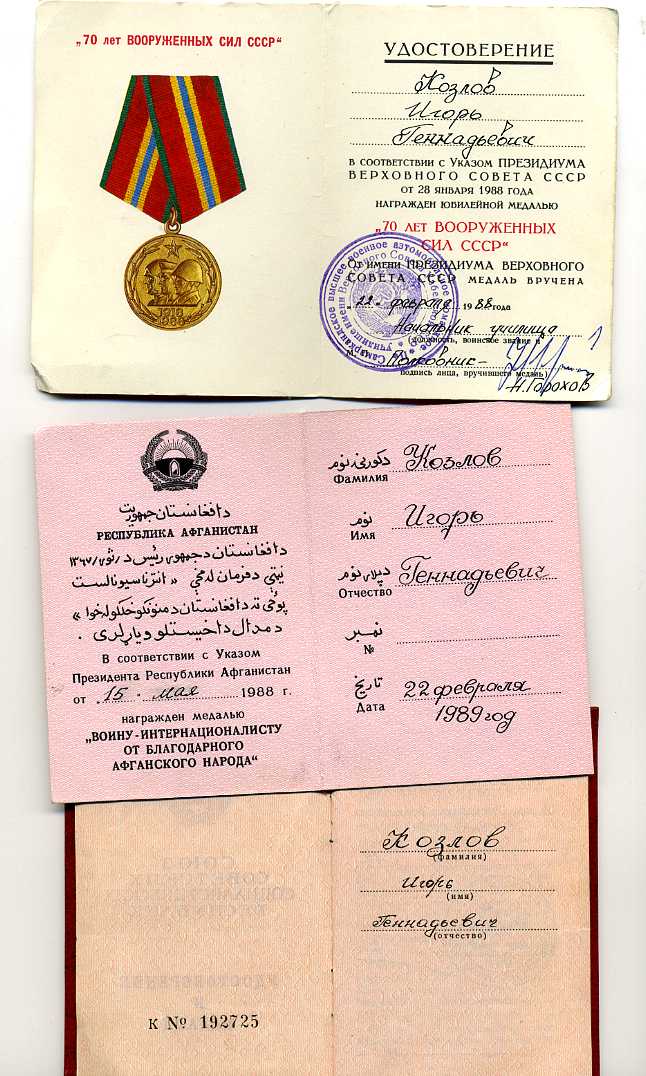 „70 лет ВООРУЖЕННЫХ СИЛ СССР“
1918
1988
УДОСТОВЕРЕНИЕ
Козлов
Игорь
Геннадьевич
В СООТВЕТСТВИИ С УКАЗОМ ПРЕЗИДИУМА
ВЕРХОВНОГО СОВЕТА СССР
ОТ 28 ЯНВАРЯ 1988 ГОДА
НАГРАЖДЕН ЮБИЛЕЙНОЙ МЕДАЛЬЮ
„70 ЛЕТ ВООРУЖЕННЫХ
СИЛ СССР“
ОТ ИМЕНИ ПРЕЗИДИУМА ВЕРХОВНОГО
СОВЕТА СССР МЕДАЛЬ ВРУЧЕНА
22 февраля 1988 года
Начальник училища
(должность, воинское звание и
Полковник -
подпись лица, вручившего медаль)
Н. Горохов
Самаркандское высшее военное автомобильное
училище имени Верховного Совета
دافغانستان جمهوریت
РЕСПУБЛИКА АФГАНИСТАН
دافغانستان دجمهوری رئیس د
دمدال داخیستلو ویاړلری .
В соответствии с Указом
Президента Республики Афганистан
от 15 мая 1988 г.
награжден медалью
„ВОИНУ-ИНТЕРНАЦИОНАЛИСТУ
ОТ БЛАГОДАРНОГО
АФГАНСКОГО НАРОДА“
دکورنۍ نوم Козлов
Фамилия
نوم Игорь
Имя
دپلار نوم Геннадьевич
Отчество
نمبر
№
تاریخ 22 февраля
Дата 1989 год
К № 192725
Козлов
(фамилия)
Игорь
(имя)
Геннадьевич
(отчество)